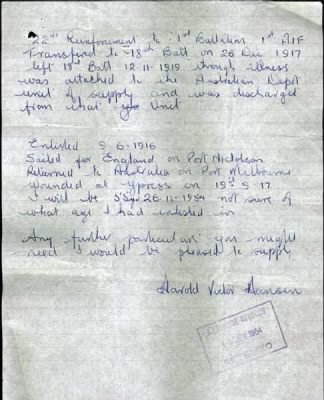 22nd Reinforcement to 1st Battalion 1st AIF
Transfired to 18th Batt on 26 Dec 1917
left 18th Batt 12-11-1919 through illness
was attached to the Australian Depot
unit of supply and was discharged
from that Unit
Enlisted 5-6-1916
Sailed for England on Port Nicholson
Returned to Australia on Port Melbourne
wounded at Ypress on 19th 9-17
I will be 26-11-1954 not sure of
what age I had enlisted in
Any further particulars you might
need I would be pleased to supply
Harold Victor Hansen
1954